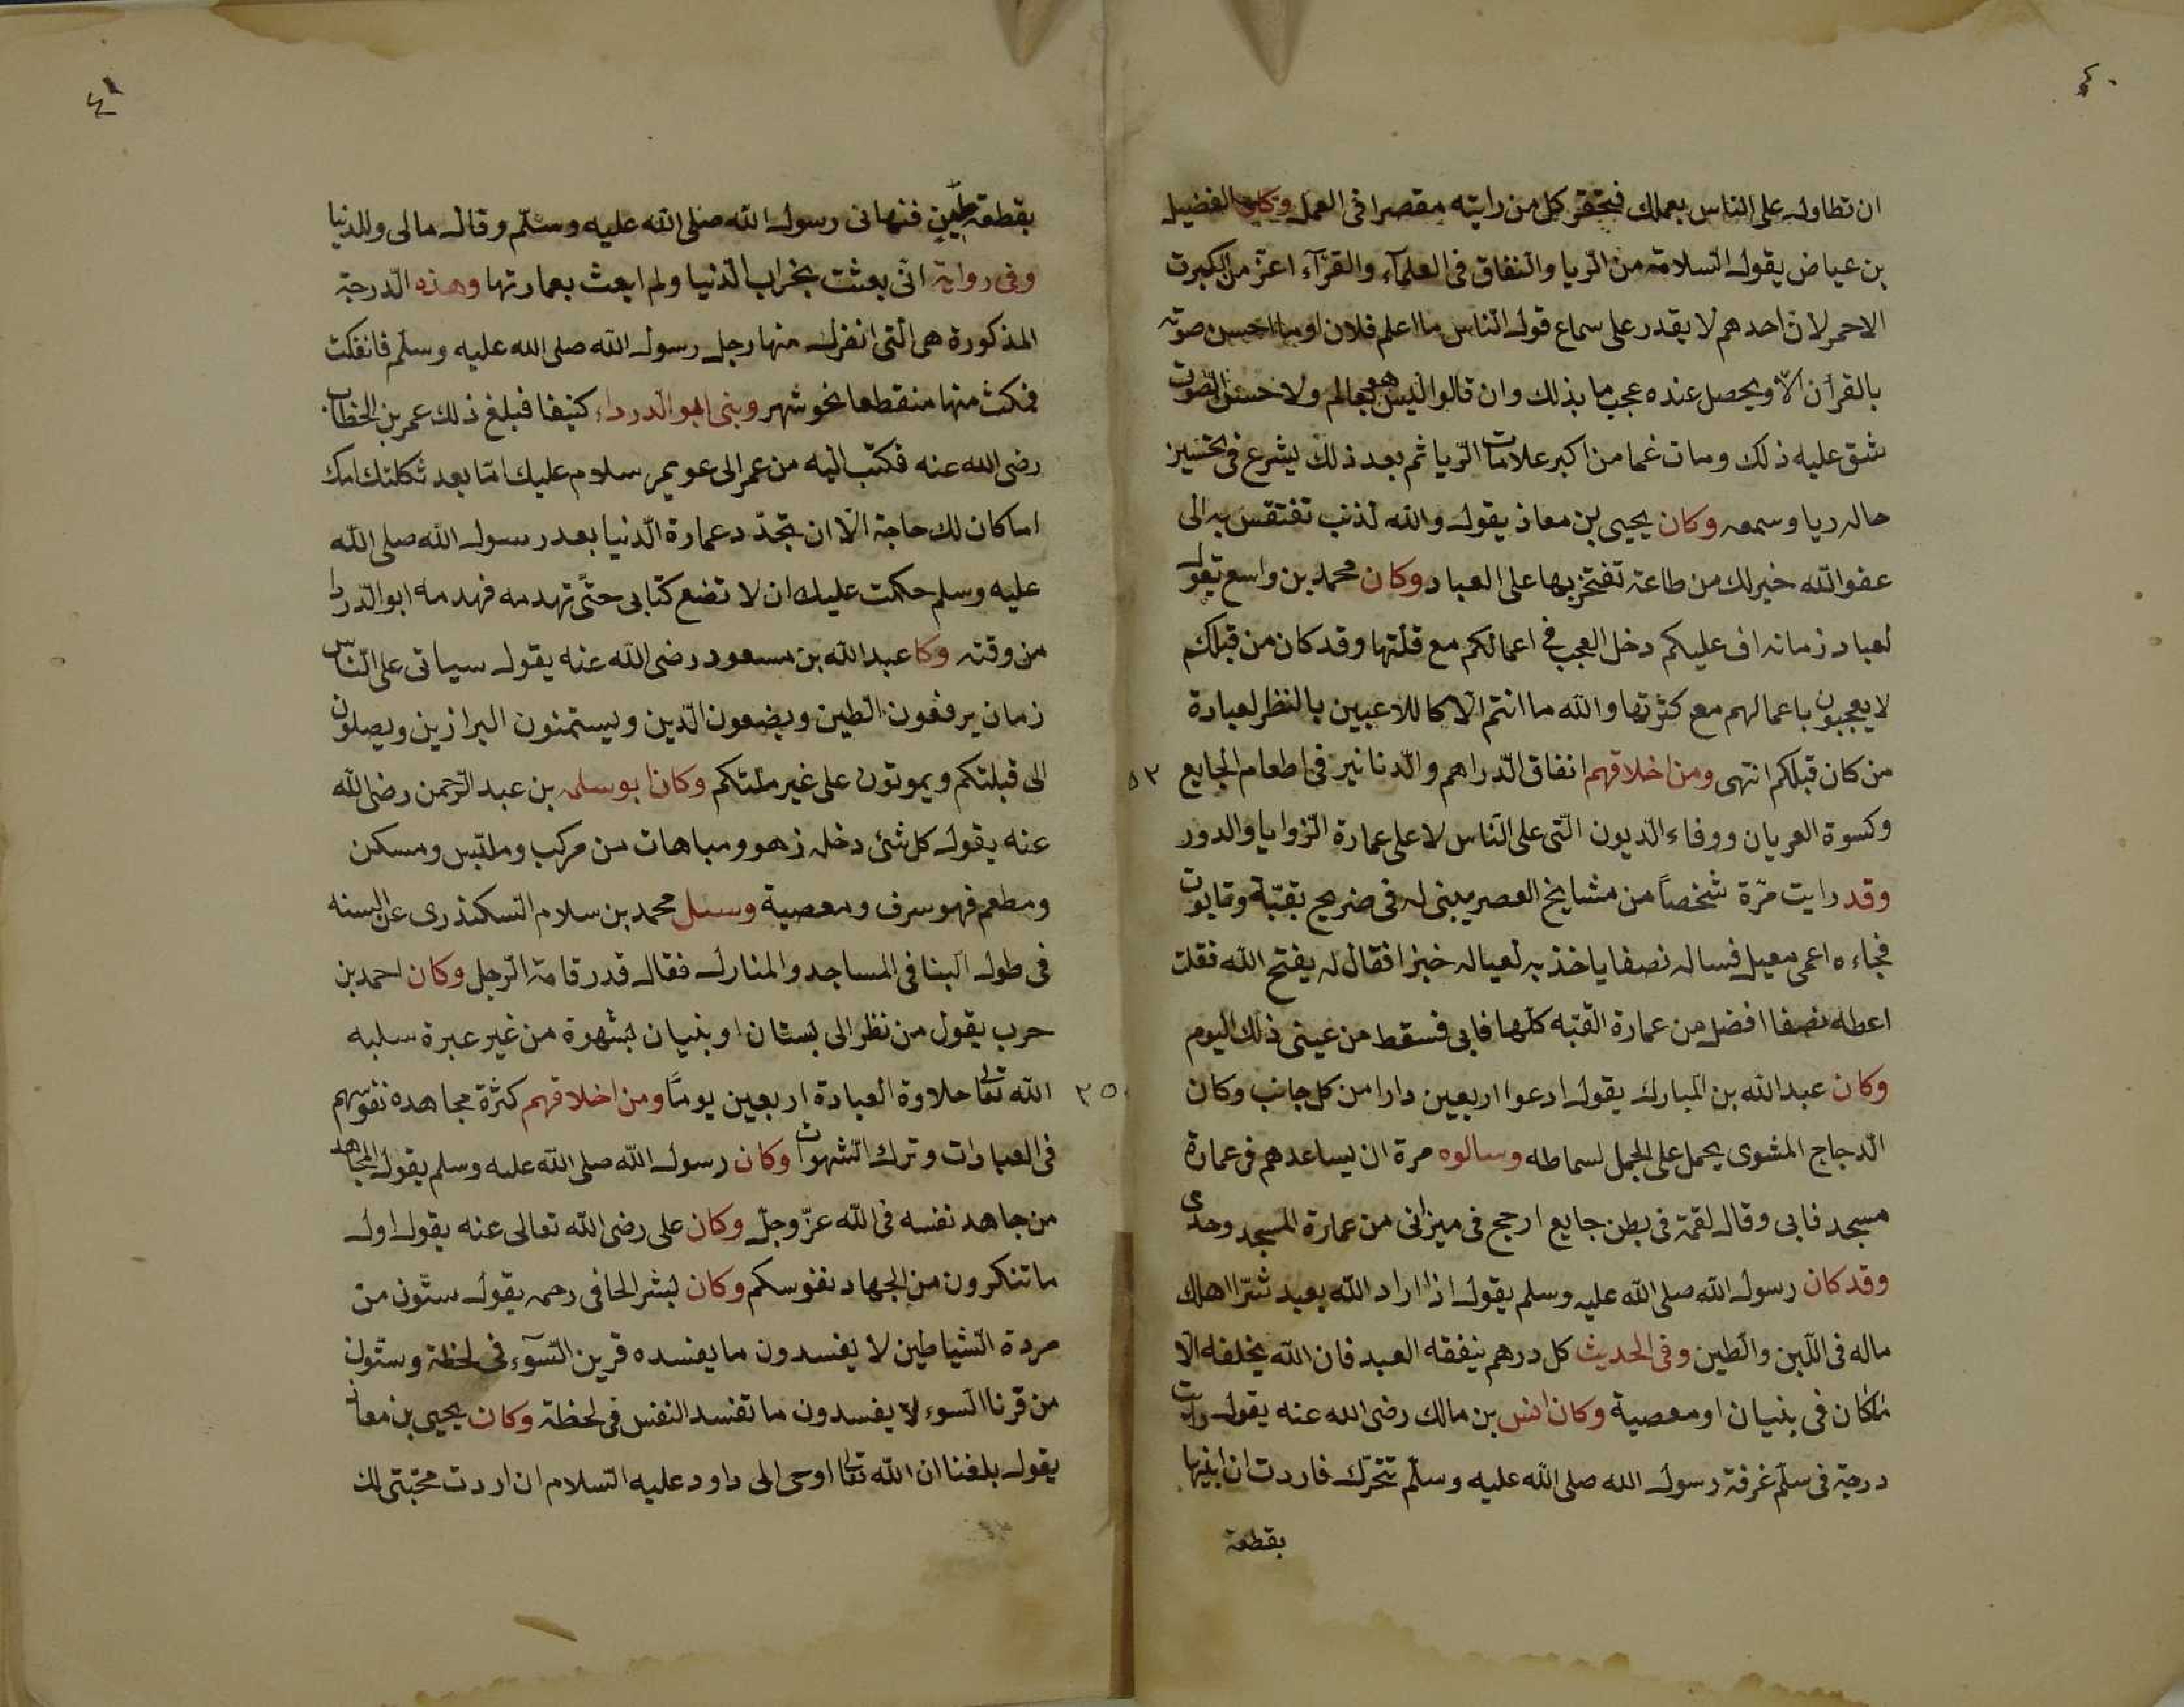 ٤٠
ان تطاول على الناس بعملك فتحقر كل من رايته مقصرا فى العمل وكان الفضيل
بن عياض يقول السلامة من الريا والنفاق فى العلمآء والقرآء اعزّ من الكبريت
الاحمر لانّ احدهم لا يقدر على سماع قول الناس ما اعلم فلان او ما احسن صوته
بالقرأن الّا ويحصل عنده عجب ما بذلك وان قالوا ليس هو بعالم ولا حسن الصوت
شق عليه ذلك ومات غما من اكبر علامات الريا ثم بعد ذلك يشرع فى تحسين
حاله ريا وسمعه وكان يحيى بن معاذ يقول والله لذنب تفتقر به الى
عفو الله خير لك من طاعة تفتخر بها على العباد وكان محمد بن واسع يقول
لعباد زمانه اف عليكم دخل العجب فى اعمالكم مع قلتها وقد كان من قبلكم
لا يعجبون باعمالهم مع كثرتها والله ما انتم الّا كاللاعبين بالنظر لعبادة
من كان قبلكم انتهى ومن اخلاقهم انفاق الدراهم والدنانير فى اطعام الجايع
٥٢
وكسوة العريان ووفاء الديون التى على الناس لا على عمارة الزوايا والدور
وقد رايت مرّة شخصاً من مشايخ العصر يبنى له فى ضريح بقبّة وتابوت
فجاءه اعمى معيل فساله نصفا ياخذ به لعياله خبزا فقال له يفتح الله فقلت
اعطه نصفا افضل من عمارة القبّه كلها فابى فسقط من عينى ذلك اليوم
وكان عبد الله بن المبارك يقول ادعوا اربعين دارا من كل جانب وكان
الدجاج المشوى يحمل على الجمل لسماطه وسالوه مرة ان يساعدهم فى عمارة
مسجد فابى وقال لقمة فى بطن جايع ارجح فى ميزانى من عمارة المسجد وحدى
وقد كان رسول الله صلى الله عليه وسلم يقول اذا اراد الله بعبد شرّا اهلك
ماله فى اللبن والطين وفى الحديث كل درهم ينفقه العبد فان الله يخلفه الا
ما كان فى بنيان او معصية وكان انس بن مالك رضى الله عنه يقول رايت
درجة فى سلّم غرفة رسول الله صلى الله عليه وسلّم تتحرّك فاردت ان ابنيها
بقطعة
٤١
بقطعة طين فنهانى رسول الله صلى الله عليه وسلّم وقال مالى وللدنيا
وفى رواية انّى بعثت بخراب الدنيا ولم ابعث بعمارتها وهذه الدرجة
المذكورة هى التى انفرك منها رجل رسول الله صلى الله عليه وسلّم فانفكت
فمكث منها منقطعا نحو شهر وبنى ابو الدرداء كنيفا فبلغ ذلك عمر بن الخطاب
رضى الله عنه فكتب اليه من عمر الى عويمر سلام عليك امّا بعد ثكلتك امك
اما كان لك حاجة الّا ان تجدّد عمارة الدنيا بعد رسول الله صلى الله
عليه وسلم حكمت عليك ان لا تضع كتابى حتّى تهدمه فهدمه ابو الدردا
من وقته وكا عبد الله بن مسعود رضى الله عنه يقول سياتى على الناس
زمان يرفعون الطين ويضعون الدين ويستمنون البرازين ويصلون
الى قبلتكم ويموتون على غير ملتكم وكان ابو سلمه بن عبد الرحمن رضى الله
عنه يقول كل شئ دخله زهو ومباهات من مركب وملبس ومسكن
ومطعم فهو سرف ومعصية وسئل محمد بن سلام السكندرى عن السنه
فى طول البنا فى المساجد والمنارك فقال قدر قامة الرجل وكان احمد بن
حرب يقول من نظر الى بستان او بنيان بشهوة من غير عبرة سلبه
الله تعالى حلاوة العبادة اربعين يوماً ومن اخلاقهم كثرة مجاهده نفوسهم
فى العبادات وترك الشهوات وكان رسول الله صلى الله عليه وسلم يقول المجاهد
من جاهد نفسه فى الله عزّ وجلّ وكان على رضى الله تعالى عنه يقول اول
ما تنكرون من الجهاد نفوسكم وكان بشر الحافى رحمه يقول ستّون من
مردة الشياطين لا يفسدون ما يفسده قرين السّوء فى لحظة وستّون
من قرنا السوء لا يفسدون ما تفسد النفس فى لحظة وكان يحيى بن معاذ
يقول بلغنا ان الله تعالى اوحى الى داود عليه السلام ان اردت محبّتى لك